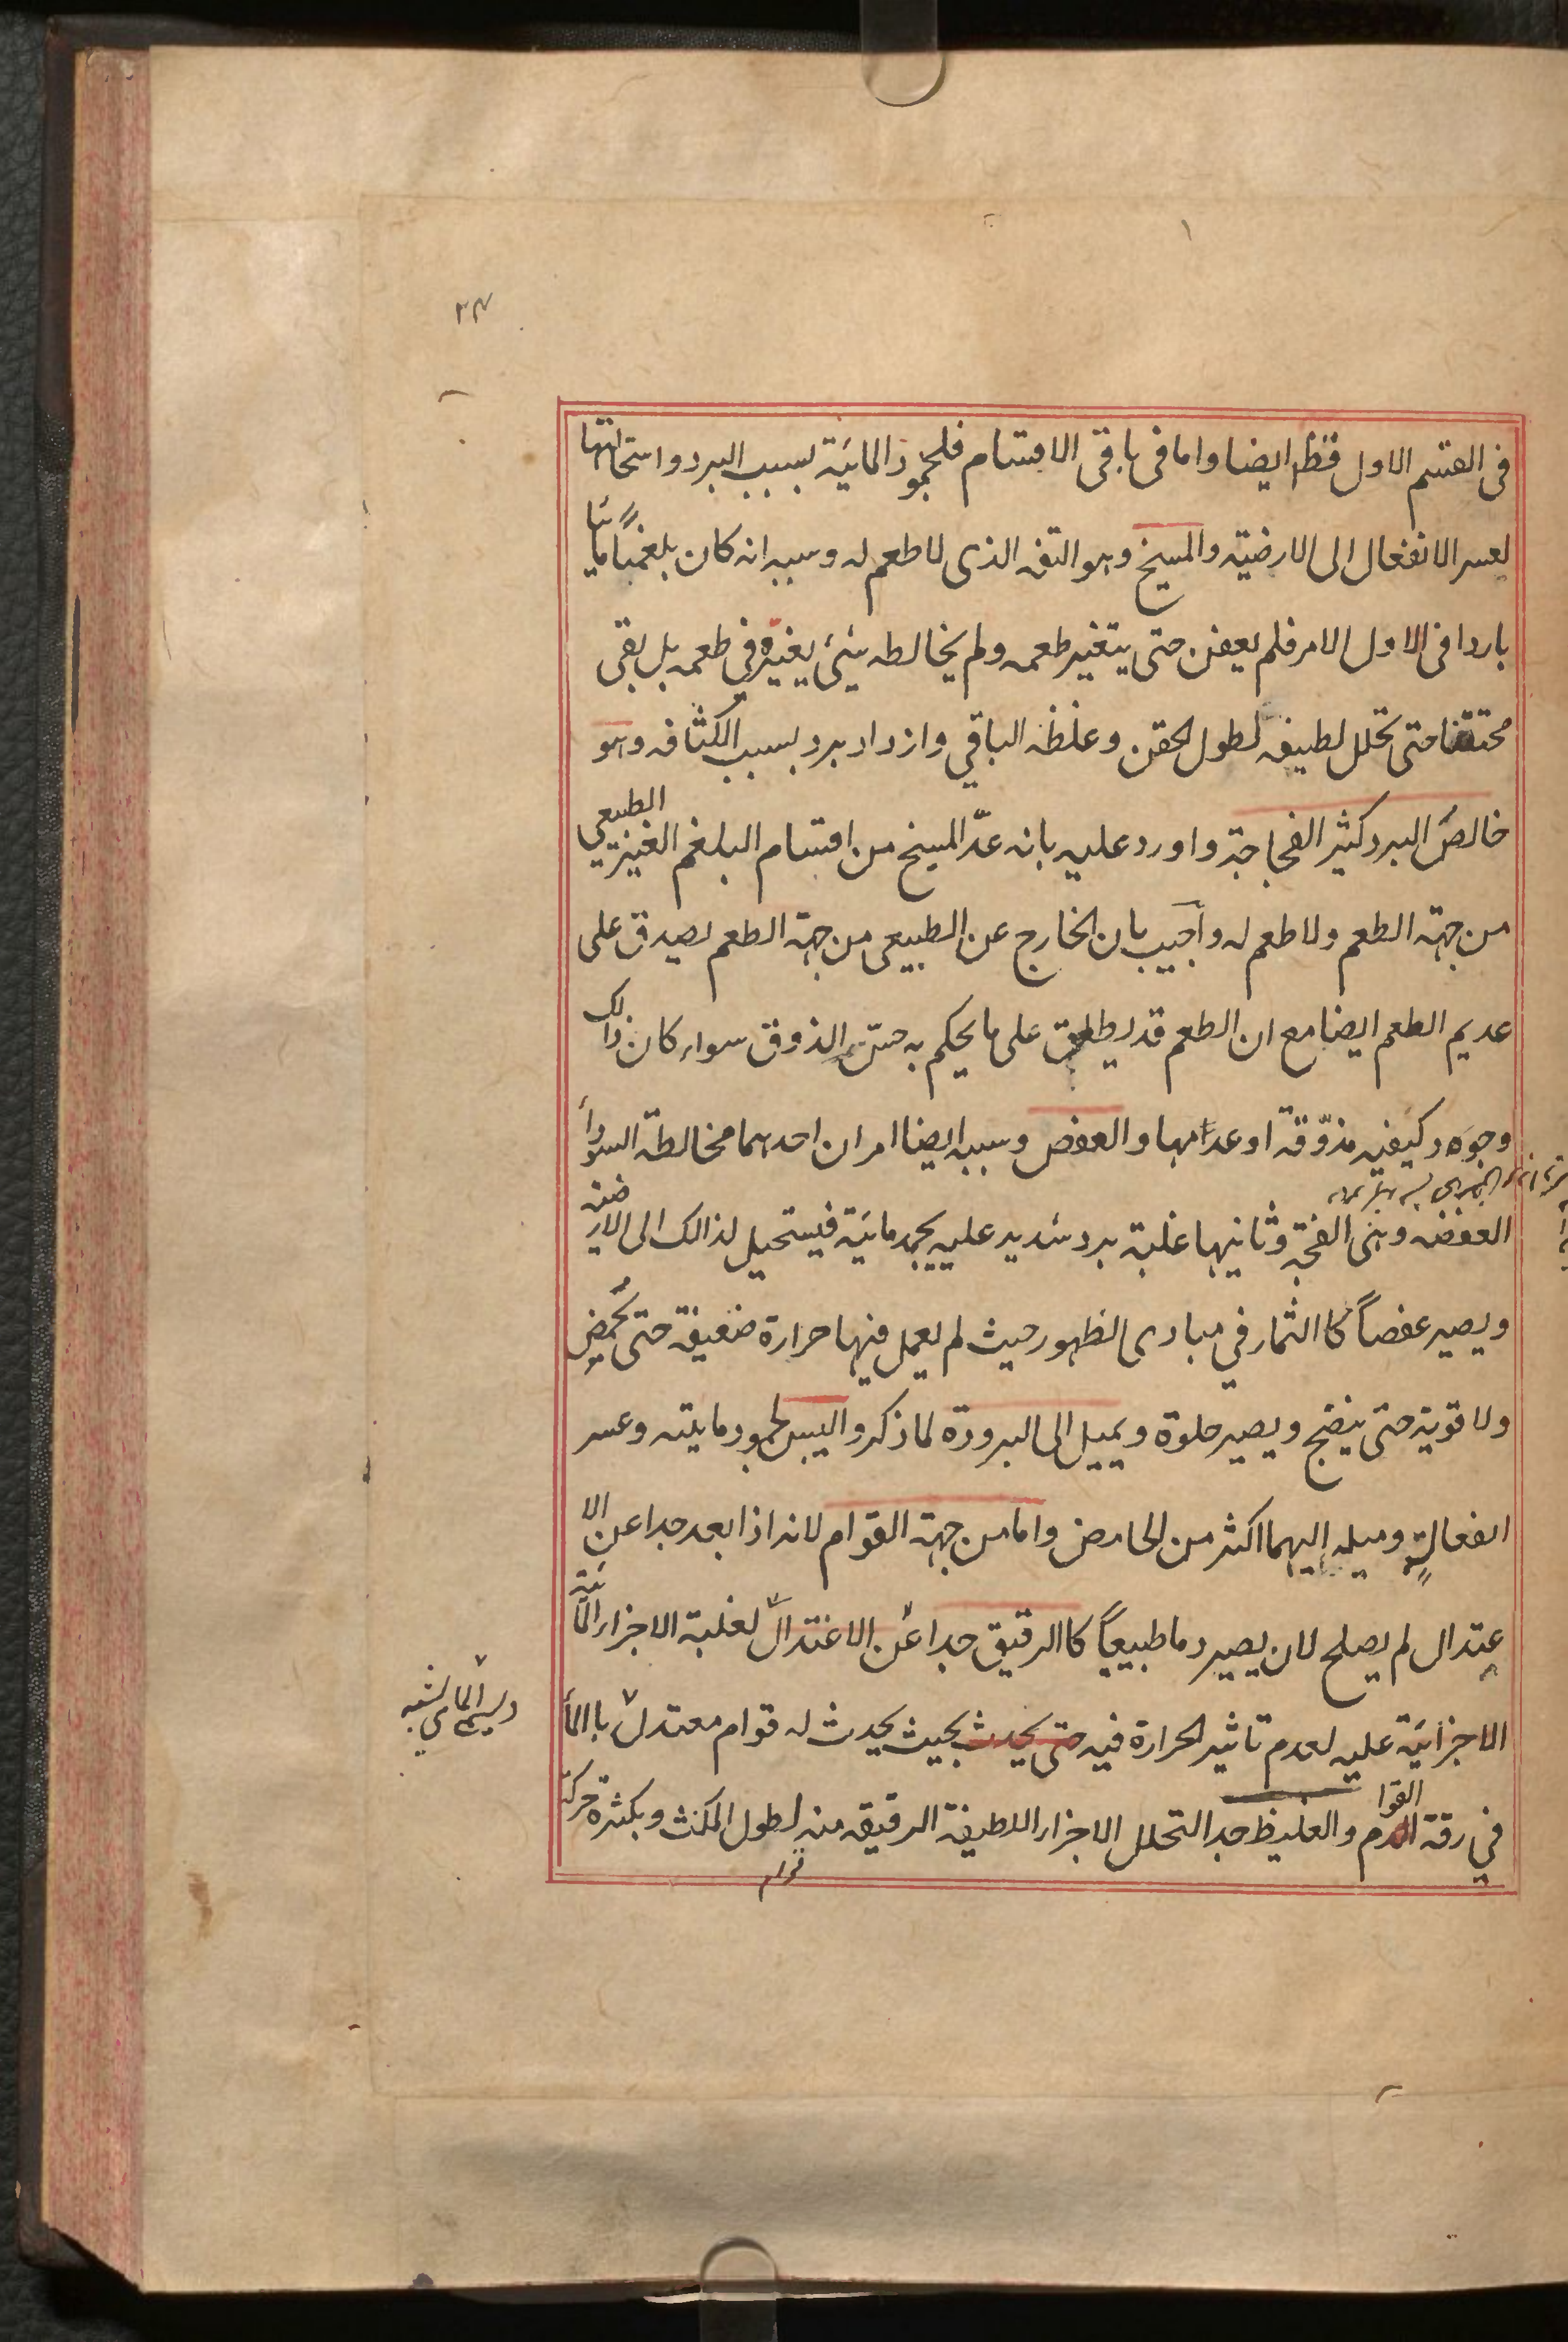 ٢٣
فى القسم الاول فظ ايضا واما فى باقى الاقسام فلجمود المائية بسبب البرد واستحالتها
لعسر الانفعال الى الارضية والمسيخ وهو التفه الذى لا طعم له وسببه انه كان بلغمًا مائيا
باردا فى الاول الامر فلم يعفن حتى يتغير طعمه ولم يخالطه شئ يغيره في طعمه بل بقى
محتقنا حتى تحلل لطيفه لطول الحقن وغلظه الباقي وازداد برد بسبب الكثافه وهو
خالص البرد كثير الفجاجة واورد عليه بانه عدّ المسيخ من اقسام البلغم الغير الطبيعي
من جهة الطعم ولا طعم له وأجيب بان الخارج عن الطبيعى من جهة الطعم يصدق على
عديم الطعم ايضا مع ان الطعم قد يطلق على ما يحكم به حسّ الذوق سواء كان ذالك
وجوه د كيفيه مذوّقة او عدامها والعفص وسببه ايضا امران احدهما مخالطة السوداء
العفصه وهى الفجّة وثانيها غلبة برد شديد عليه يجمد مائية فيستحيل لذالك الى الارضيه
ويصير عفصاً كا الثمار في مبادى الظهور حيث لم يعمل فيها حرارة ضعيفة حتى تحمّض
ولا قوية حتى ينضج ويصير حلوة ويميل الى البرودة لما ذكر واليبس لجمود مايته وعسر
انفعاله وميله اليهما اكثر من الحامض واما من جهة القوام لانه اذا بعد جدا عن الا
عتدال لم يصلح لان يصير دما طبيعياً كا الرقيق جدا عن الاعتدال لغلبة الاجزاء المائية
الاجزائية عليه لعدم تاثير الحرارة فيه حتى يحدث بحيث يحدث له قوام معتدل با الماء
ويسمى المائي لشبه
في رقة القوام والغليظ جدا لتحلل الاجزاء اللطيفة الرقيقه منه لطول المكث وبكثرة حركة